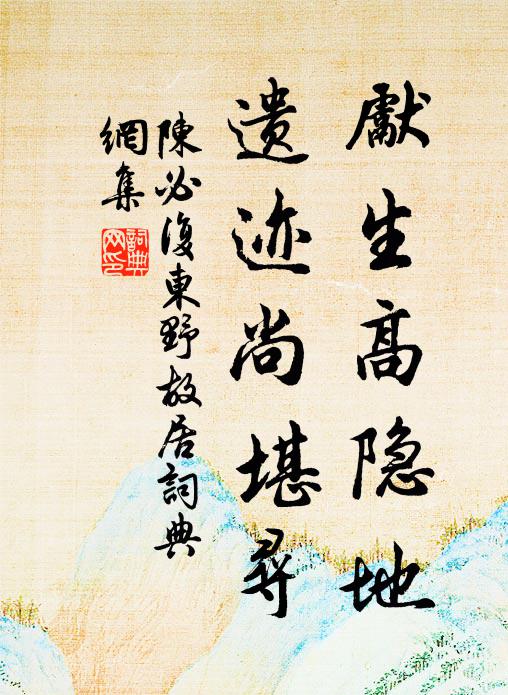 獻生高隐地
遗迹尚堪尋
陳必復東野故居詞典
網集
詞典網印